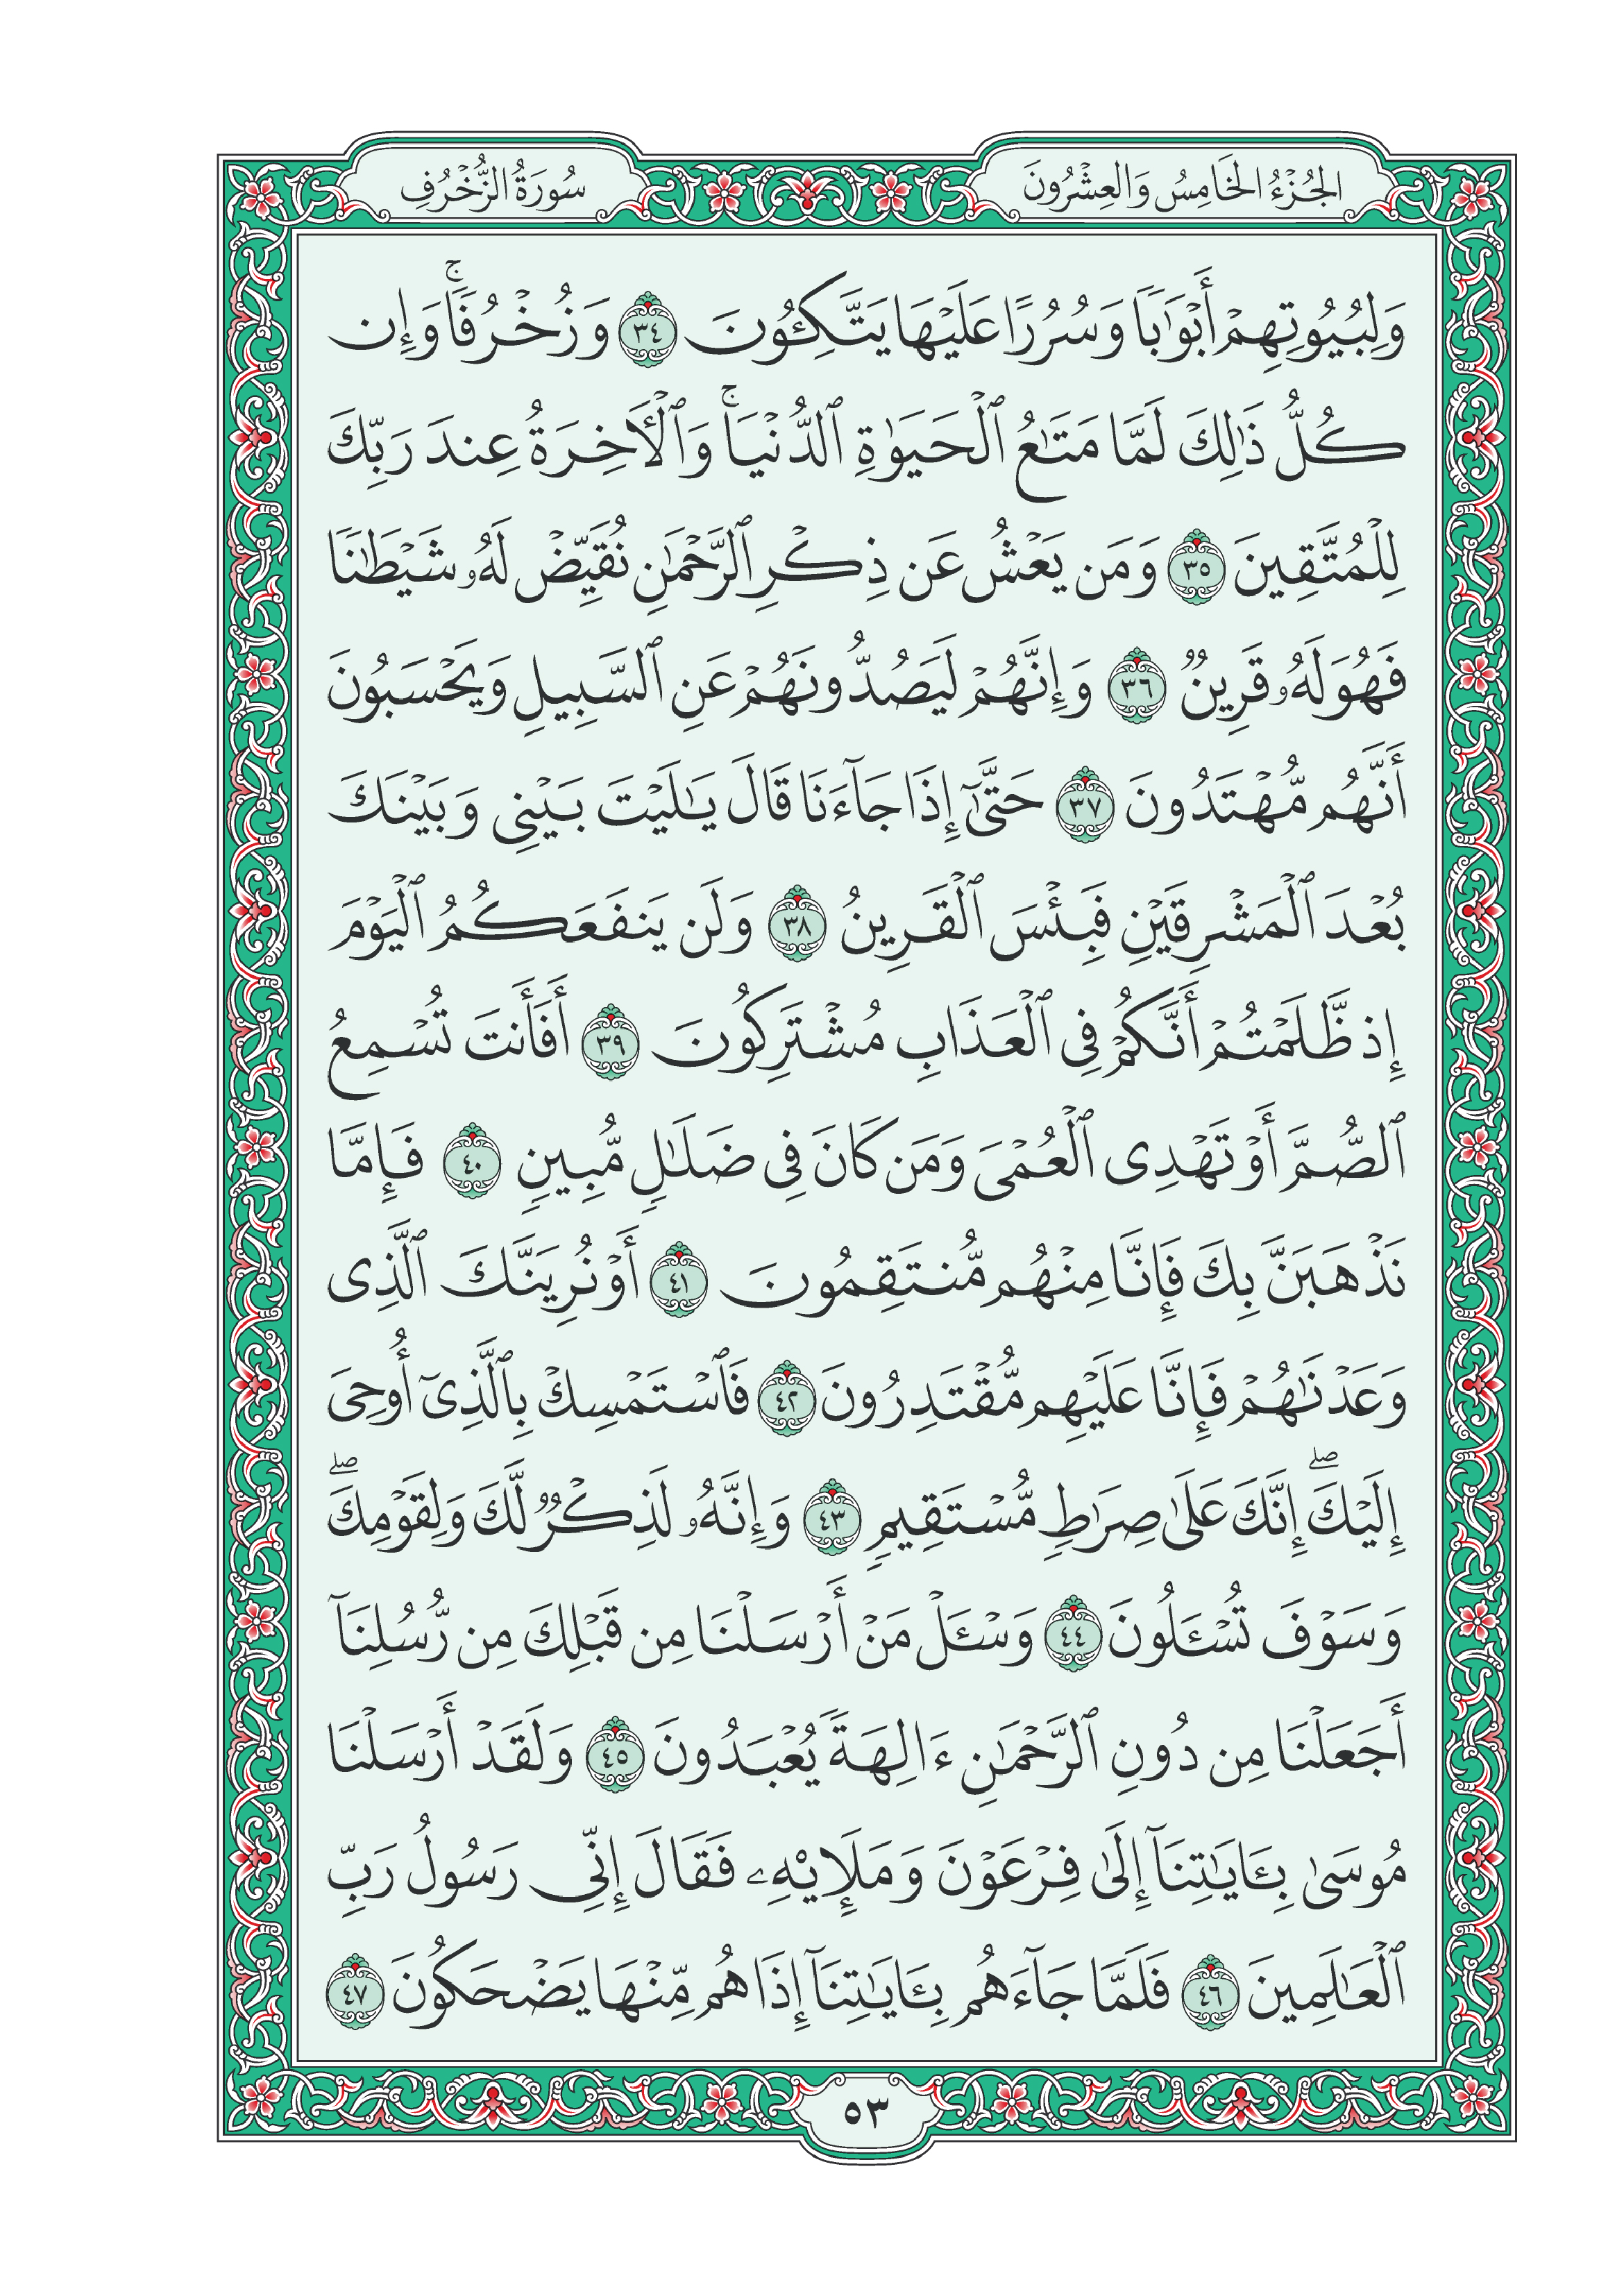 الجُزْءُ الخَامِسُ وَالعِشْرُونَ
سُورَةُ الزُّخْرُفِ
وَلِبُيُوتِهِمْ أَبْوَٰبًا وَسُرُرًا عَلَيْهَا يَتَّكِـُٔونَ ٣٤ وَزُخْرُفًا ۚ وَإِن
كُلُّ ذَٰلِكَ لَمَّا مَتَـٰعُ ٱلْحَيَوٰةِ ٱلدُّنْيَا ۚ وَٱلْـَٔاخِرَةُ عِندَ رَبِّكَ
لِلْمُتَّقِينَ ٣٥ وَمَن يَعْشُ عَن ذِكْرِ ٱلرَّحْمَـٰنِ نُقَيِّضْ لَهُۥ شَيْطَـٰنًا
فَهُوَ لَهُۥ قَرِينٌ ٣٦ وَإِنَّهُمْ لَيَصُدُّونَهُمْ عَنِ ٱلسَّبِيلِ وَيَحْسَبُونَ
أَنَّهُم مُّهْتَدُونَ ٣٧ حَتَّىٰٓ إِذَا جَآءَنَا قَالَ يَـٰلَيْتَ بَيْنِى وَبَيْنَكَ
بُعْدَ ٱلْمَشْرِقَيْنِ فَبِئْسَ ٱلْقَرِينُ ٣٨ وَلَن يَنفَعَكُمُ ٱلْيَوْمَ
إِذ ظَّلَمْتُمْ أَنَّكُمْ فِى ٱلْعَذَابِ مُشْتَرِكُونَ ٣٩ أَفَأَنتَ تُسْمِعُ
ٱلصُّمَّ أَوْ تَهْدِى ٱلْعُمْىَ وَمَن كَانَ فِى ضَلَـٰلٍ مُّبِينٍ ٤٠ فَإِمَّا
نَذْهَبَنَّ بِكَ فَإِنَّا مِنْهُم مُّنتَقِمُونَ ٤١ أَوْ نُرِيَنَّكَ ٱلَّذِى
وَعَدْنَـٰهُمْ فَإِنَّا عَلَيْهِم مُّقْتَدِرُونَ ٤٢ فَٱسْتَمْسِكْ بِٱلَّذِىٓ أُوحِىَ
إِلَيْكَ ۖ إِنَّكَ عَلَىٰ صِرَٰطٍ مُّسْتَقِيمٍ ٤٣ وَإِنَّهُۥ لَذِكْرٌ لَّكَ وَلِقَوْمِكَ ۖ
وَسَوْفَ تُسْـَٔلُونَ ٤٤ وَسْـَٔلْ مَنْ أَرْسَلْنَا مِن قَبْلِكَ مِن رُّسُلِنَآ
أَجَعَلْنَا مِن دُونِ ٱلرَّحْمَـٰنِ ءَالِهَةً يُعْبَدُونَ ٤٥ وَلَقَدْ أَرْسَلْنَا
مُوسَىٰ بِـَٔايَـٰتِنَآ إِلَىٰ فِرْعَوْنَ وَمَلَإِي۟هِۦ فَقَالَ إِنِّى رَسُولُ رَبِّ
ٱلْعَـٰلَمِينَ ٤٦ فَلَمَّا جَآءَهُم بِـَٔايَـٰتِنَآ إِذَا هُم مِّنْهَا يَضْحَكُونَ ٤٧
٥٣